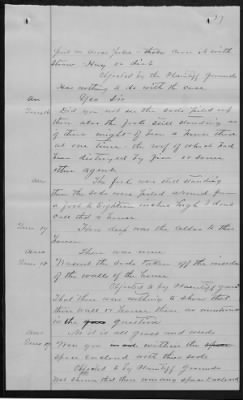 37
just in ... poles - ... over it with
straw - Hay, or dirt
Objected to by the Plaintiff grounds
Has nothing to do with the case.
Ans Yes Sir
Did you not see the sods piled up
there also the posts still standing as
if there might of been a house there
at one time - the roof of which had
been destroyed by fire or some
other agent.
Ans The posts were still standing
then the sods were piled around from
a foot to Eighteen inches high I dont
call that a house
How deep was the cellar to this
house
Ans There was none
Wasent the sods taken off the inside
of the wall of the house
Objected to by Plaintiff grounds
That there was nothing to show that
there wall or house there as mentioned
in the question
Ans No it is all grass and weeds
Was you in and within the
space enclosed with this sods
Objected to by Plaintiff grounds
Not shown that there was any space enclosed